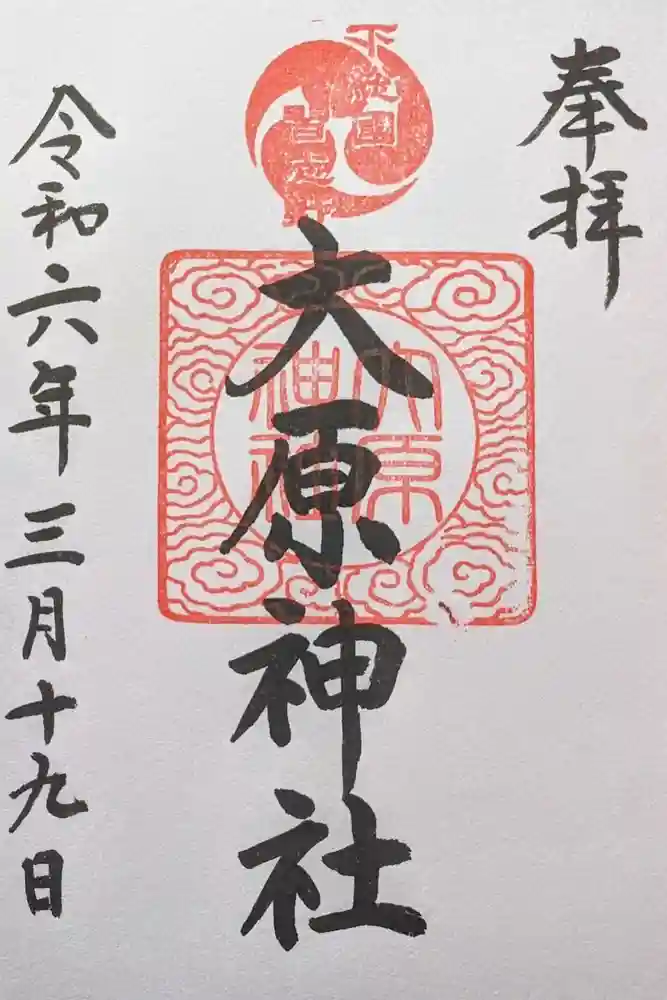 奉拝
下総國
習志野
大原神社
大原
神社
令和六年三月十九日